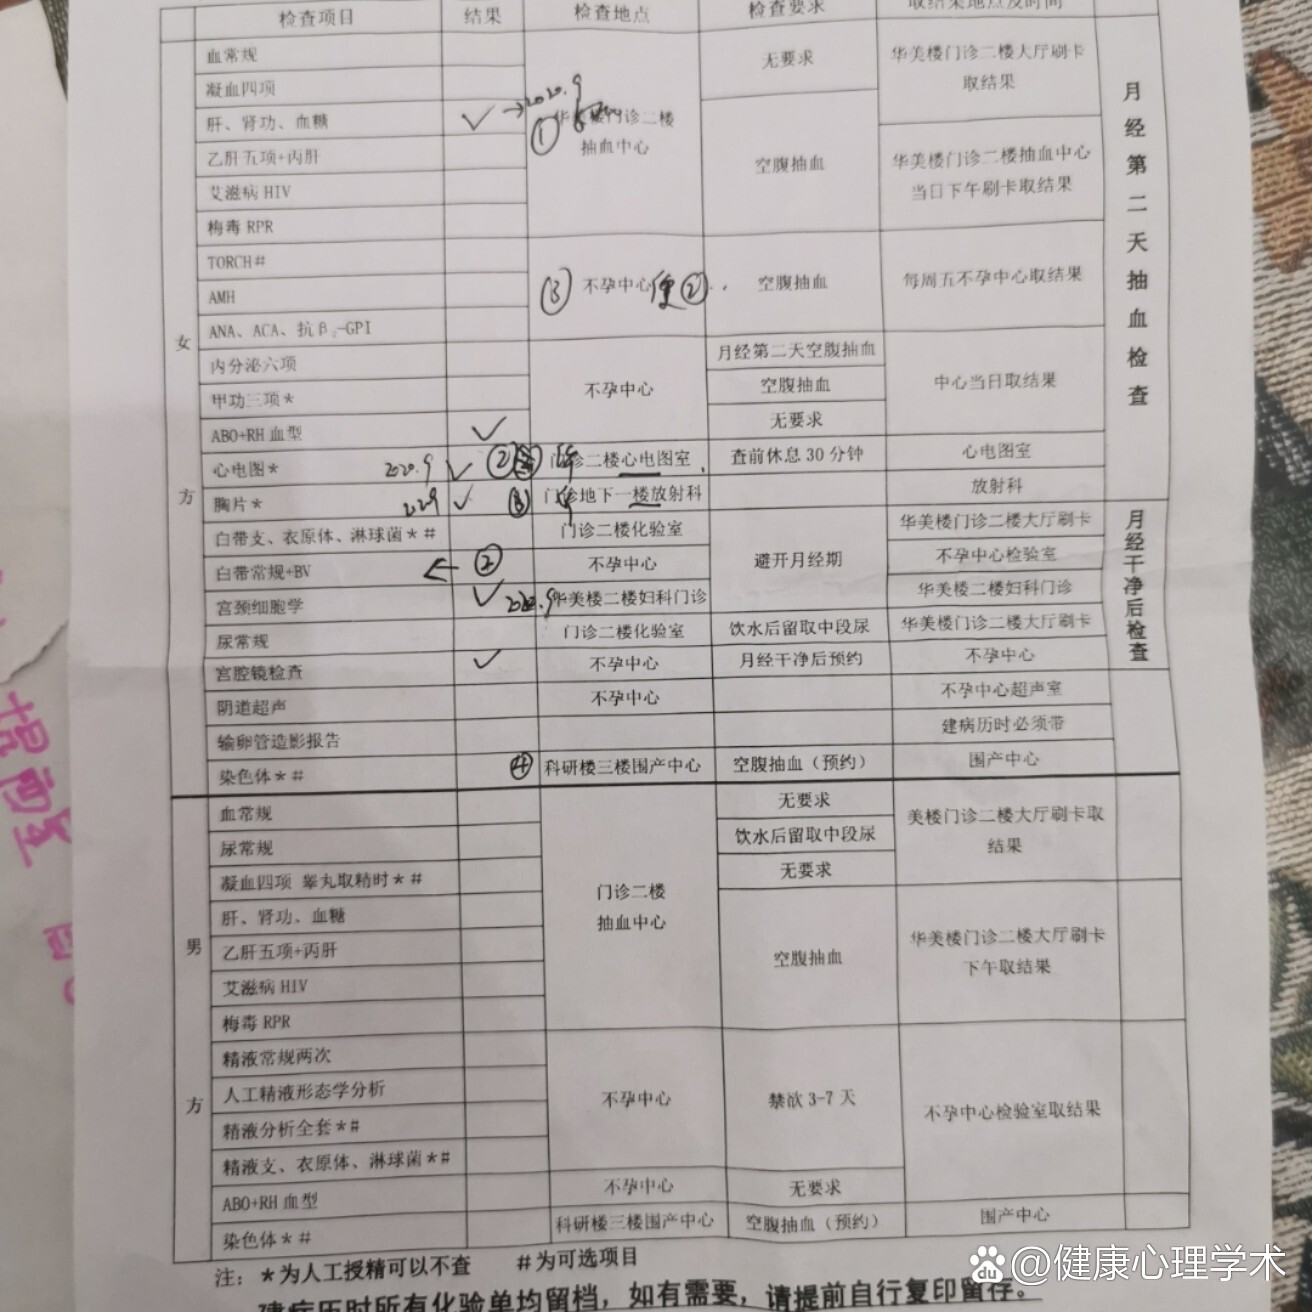 检查项目 结果 检查地点 检查要求 取结果地点及时间
女方
血常规 无要求 华美楼门诊二楼大厅刷卡
取结果
凝血四项
肝、肾功、血糖 ✓→2020.9 ① 华美楼门诊二楼
抽血中心 空腹抽血 华美楼门诊二楼抽血中心
当日下午刷卡取结果
乙肝五项+丙肝
艾滋病 HIV
梅毒 RPR
TORCH# ③ 不孕中心 ② 空腹抽血 每周五不孕中心取结果
AMH
ANA、ACA、抗β₂-GPI
内分泌六项 不孕中心 月经第二天空腹抽血 中心当日取结果
甲功三项* 空腹抽血
ABO+RH 血型 ✓ 无要求
月经第二天抽血检查
心电图* 2020.9 ✓ ② 门诊二楼心电图室 查前休息 30 分钟 心电图室
胸片* ✓ ③ 门诊地下一楼放射科 放射科
白带支、衣原体、淋球菌*# 门诊二楼化验室 避开月经期 华美楼门诊二楼大厅刷卡
白带常规+BV ← ② 不孕中心 不孕中心检验室
宫颈细胞学 ✓ 2020.9 华美楼二楼妇科门诊 华美楼二楼妇科门诊
尿常规 门诊二楼化验室 饮水后留取中段尿 华美楼门诊二楼大厅刷卡
宫腔镜检查 ✓ 不孕中心 月经干净后预约 不孕中心
月经干净后检查
阴道超声 不孕中心 不孕中心超声室
输卵管造影报告 建病历时必须带
染色体*# ④ 科研楼三楼围产中心 空腹抽血（预约） 围产中心
男方
血常规 门诊二楼
抽血中心 无要求 美楼门诊二楼大厅刷卡取
结果
尿常规 饮水后留取中段尿
凝血四项 睾丸取精时*# 无要求
肝、肾功、血糖 空腹抽血 华美楼门诊二楼大厅刷卡
下午取结果
乙肝五项+丙肝
艾滋病 HIV
梅毒 RPR
精液常规两次 不孕中心 禁欲 3-7 天 不孕中心检验室取结果
人工精液形态学分析
精液分析全套*#
精液支、衣原体、淋球菌*#
ABO+RH 血型 不孕中心 无要求
染色体*# 科研楼三楼围产中心 空腹抽血（预约） 围产中心
注：*为人工授精可以不查 #为可选项目
建病历时所有化验单均留档，如有需要，请提前自行复印留存。
du @健康心理学术